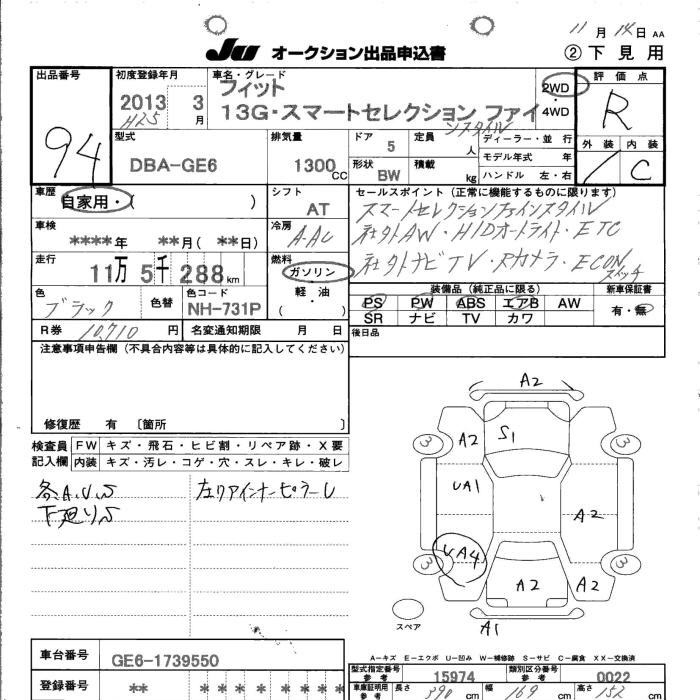 11月14日 AA
JU オークション出品申込書 ②下見用
出品番号 94
初度登録年月 2013 3月 H25
車名・グレード フィット
13G・スマートセレクション ファイ
ンスタイル
2WD・4WD
評価点 R
外装 内装 C
型式 DBA-GE6
排気量 1300CC
ドア 5
形状 BW
定員 人
積載 kg
ディーラー・並行
モデル年式 年
ハンドル 左・右
車歴 自家用・( )
シフト AT
セールスポイント(正常に機能するものに限ります)
スマートセレクションファインスタイル
社外AW・HIDオートライト・ETC
社外ナビTV・Rカメラ・ECONスイッチ
車検 ****年 **月(**日)
冷房 A-AC
走行 11万5千288km
燃料 ガソリン・軽油( )
色 ブラック
色替
色コード NH-731P
装備品(純正品に限る) 新車保証書
PS PW ABS エアB AW 有・無
SR ナビ TV カワ
R券 10,710円 名変通知期限 月 日
後日品
注意事項申告欄(不具合内容等は具体的に記入してください)
修復歴 有 〔箇所 〕
検査員記入欄
FW キズ・飛石・ヒビ割・リペア跡・X要
内装 キズ・汚レ・コゲ・穴・スレ・キレ・破レ
各A.U.S
下廻りS
左リアインナーピラーU
A2
3 A2 S1 3
UA1 A2
3 UA4 A2 A2 3
A1
スペア
A-キズ E-エクボ U-凹み W-補修跡 S-サビ C-腐食 XX-交換済
車台番号 GE6-1739550
型式指定番号 参考 15974 類別区分番号 参考 0022
登録番号 ** * * * * * * *
車庫証明用 参考 長さ 390cm 幅 169cm 高さ 152cm